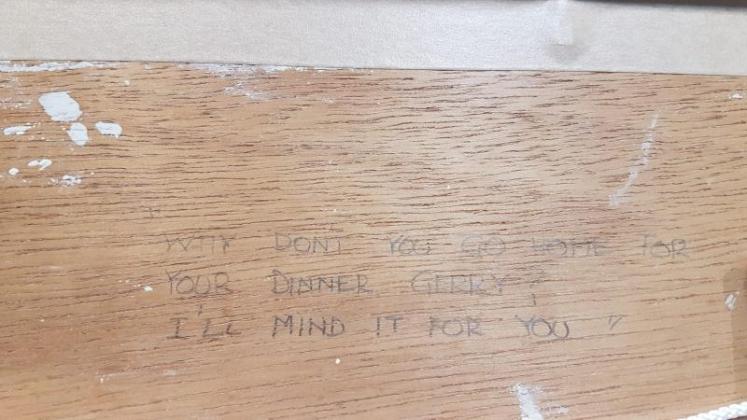 "WHY DONT YOU GO HOME FOR
YOUR DINNER GERRY?
I'LL MIND IT FOR YOU"